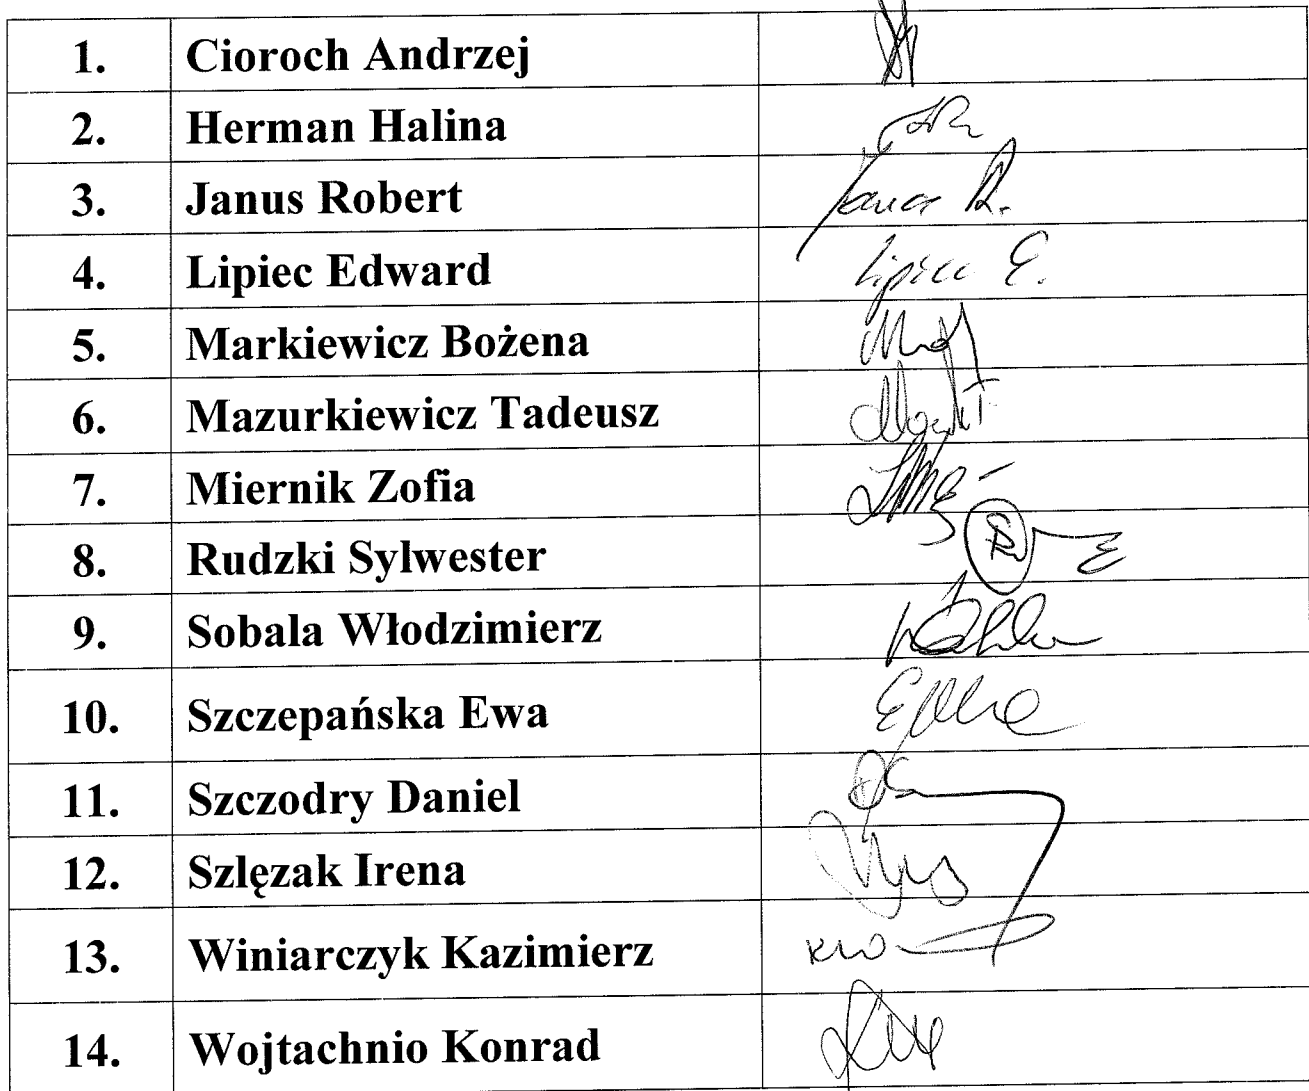 1. Cioroch Andrzej
2. Herman Halina
3. Janus Robert Janus R.
4. Lipiec Edward Lipiec E.
5. Markiewicz Bożena
6. Mazurkiewicz Tadeusz
7. Miernik Zofia
8. Rudzki Sylwester
9. Sobala Włodzimierz
10. Szczepańska Ewa
11. Szczodry Daniel
12. Szlęzak Irena
13. Winiarczyk Kazimierz
14. Wojtachnio Konrad